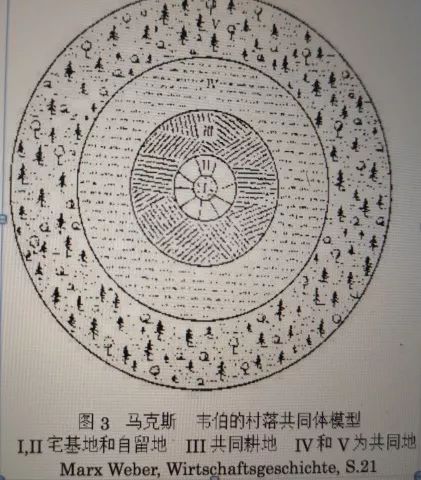 V
IV
III
II
I
图 3 马克斯 韦伯的村落共同体模型
I,II 宅基地和自留地 III 共同耕地 IV 和 V 为共同地
Marx Weber, Wirtschaftsgeschichte, S.21